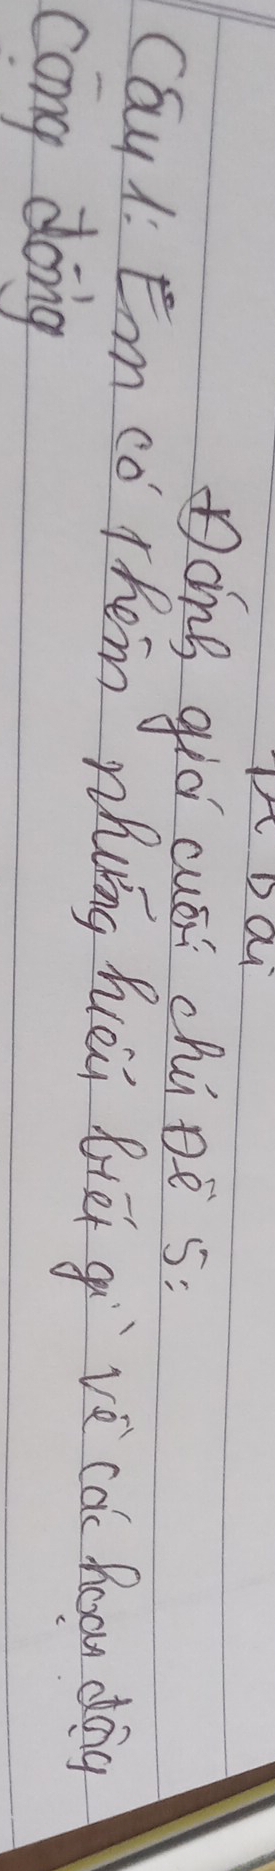 Bài
Đánh giá cuối chủ Đề 5:
Câu 1: Em có thêm những hiểu biết gì về các hoạt động
Cộng đồng